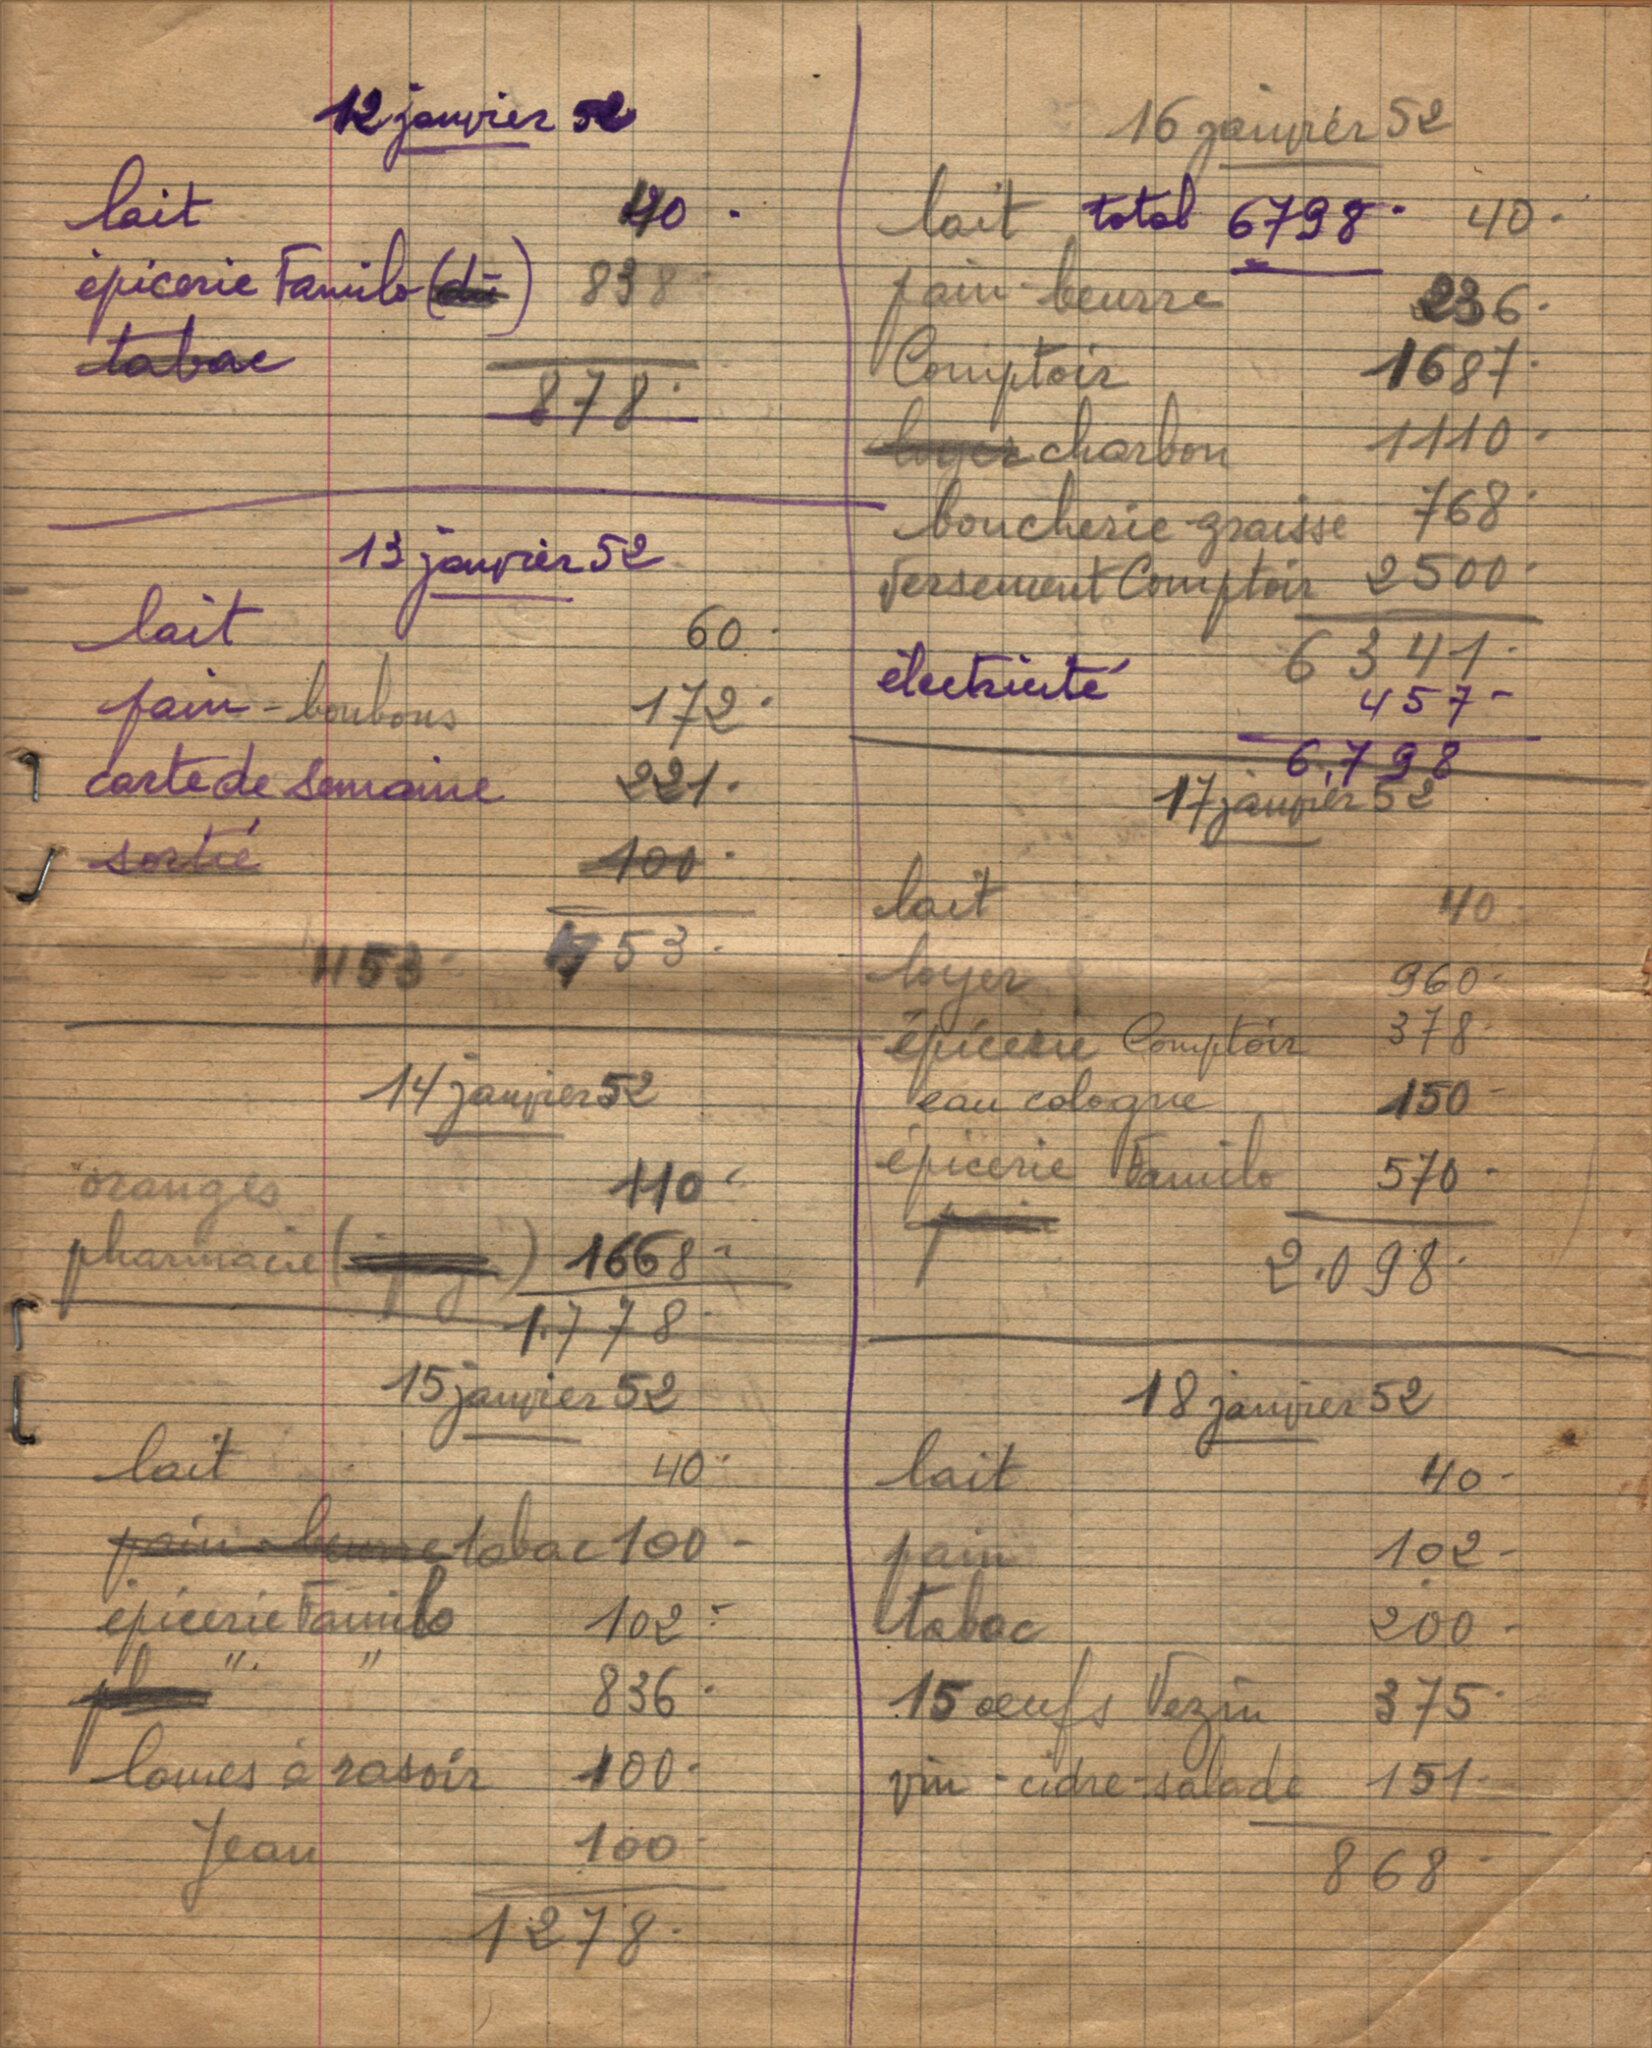 12 janvier 52
lait 40.
épicerie Familo (dû) 838.
tabac
878.
13 janvier 52
lait 60.
pain - bonbons 172.
carte de semaine 221.
sortie 100.
453. 453.
14 janvier 52
oranges 110.
pharmacie ( ) 1668.
1.778.
15 janvier 52
lait 40.
pain - beurre tabac 100 -
épicerie Familo 102 -
" " 836.
lames à rasoir 100.
Jean 100
1278.
16 janvier 52
lait total 6798. 40.
pain - beurre 236.
Comptoir 1687.
loyer charbon 1110.
boucherie - graisse 768.
versement Comptoir 2500.
6341.
électricité 457 -
6.798
17 janvier 52
lait 40.
loyer 960.
épicerie Comptoir 378.
eau cologne 150 -
épicerie Familo 570.
pain
2.098.
18 janvier 52
lait 40 -
pain 102 -
tabac 200 -
15 œufs Vezin 375.
vin - cidre - salade 151.
868.